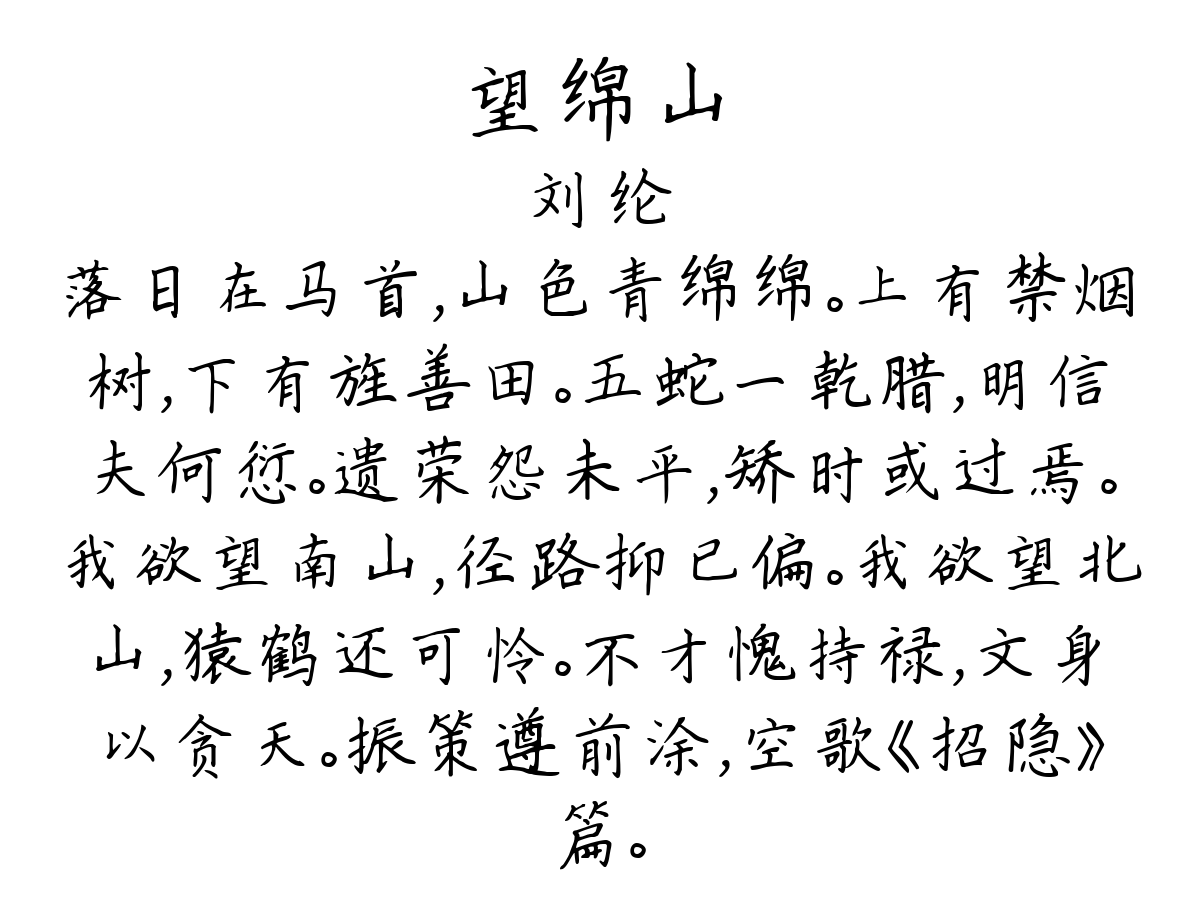 望绵山
刘纶
落日在马首,山色青绵绵。上有禁烟
树,下有旌善田。五蛇一乾腊,明信
夫何愆。遗荣怨未平,矫时或过焉。
我欲望南山,径路抑已偏。我欲望北
山,猿鹤还可怜。不才愧持禄,文身
以贪天。振策遵前涂,空歌《招隐》
篇。